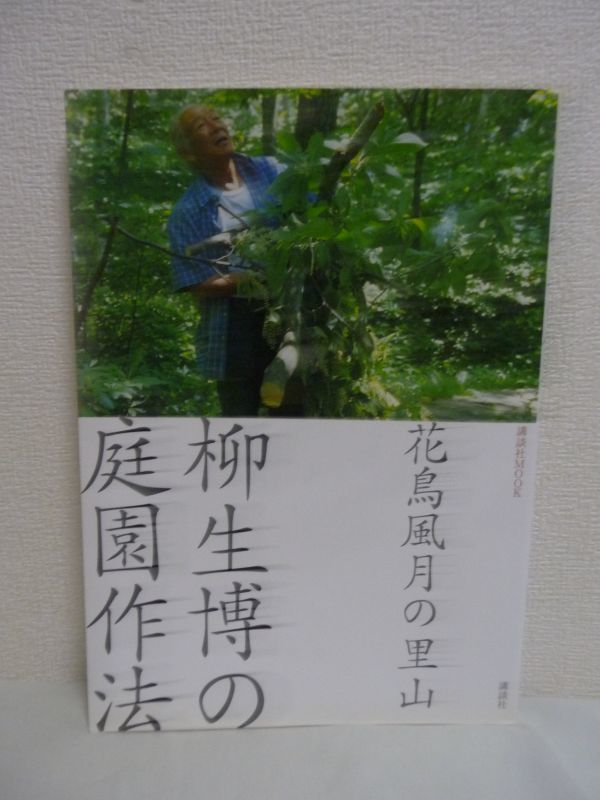 講談社MOOK
花鳥風月の里山
柳生博の
庭園作法
講談社